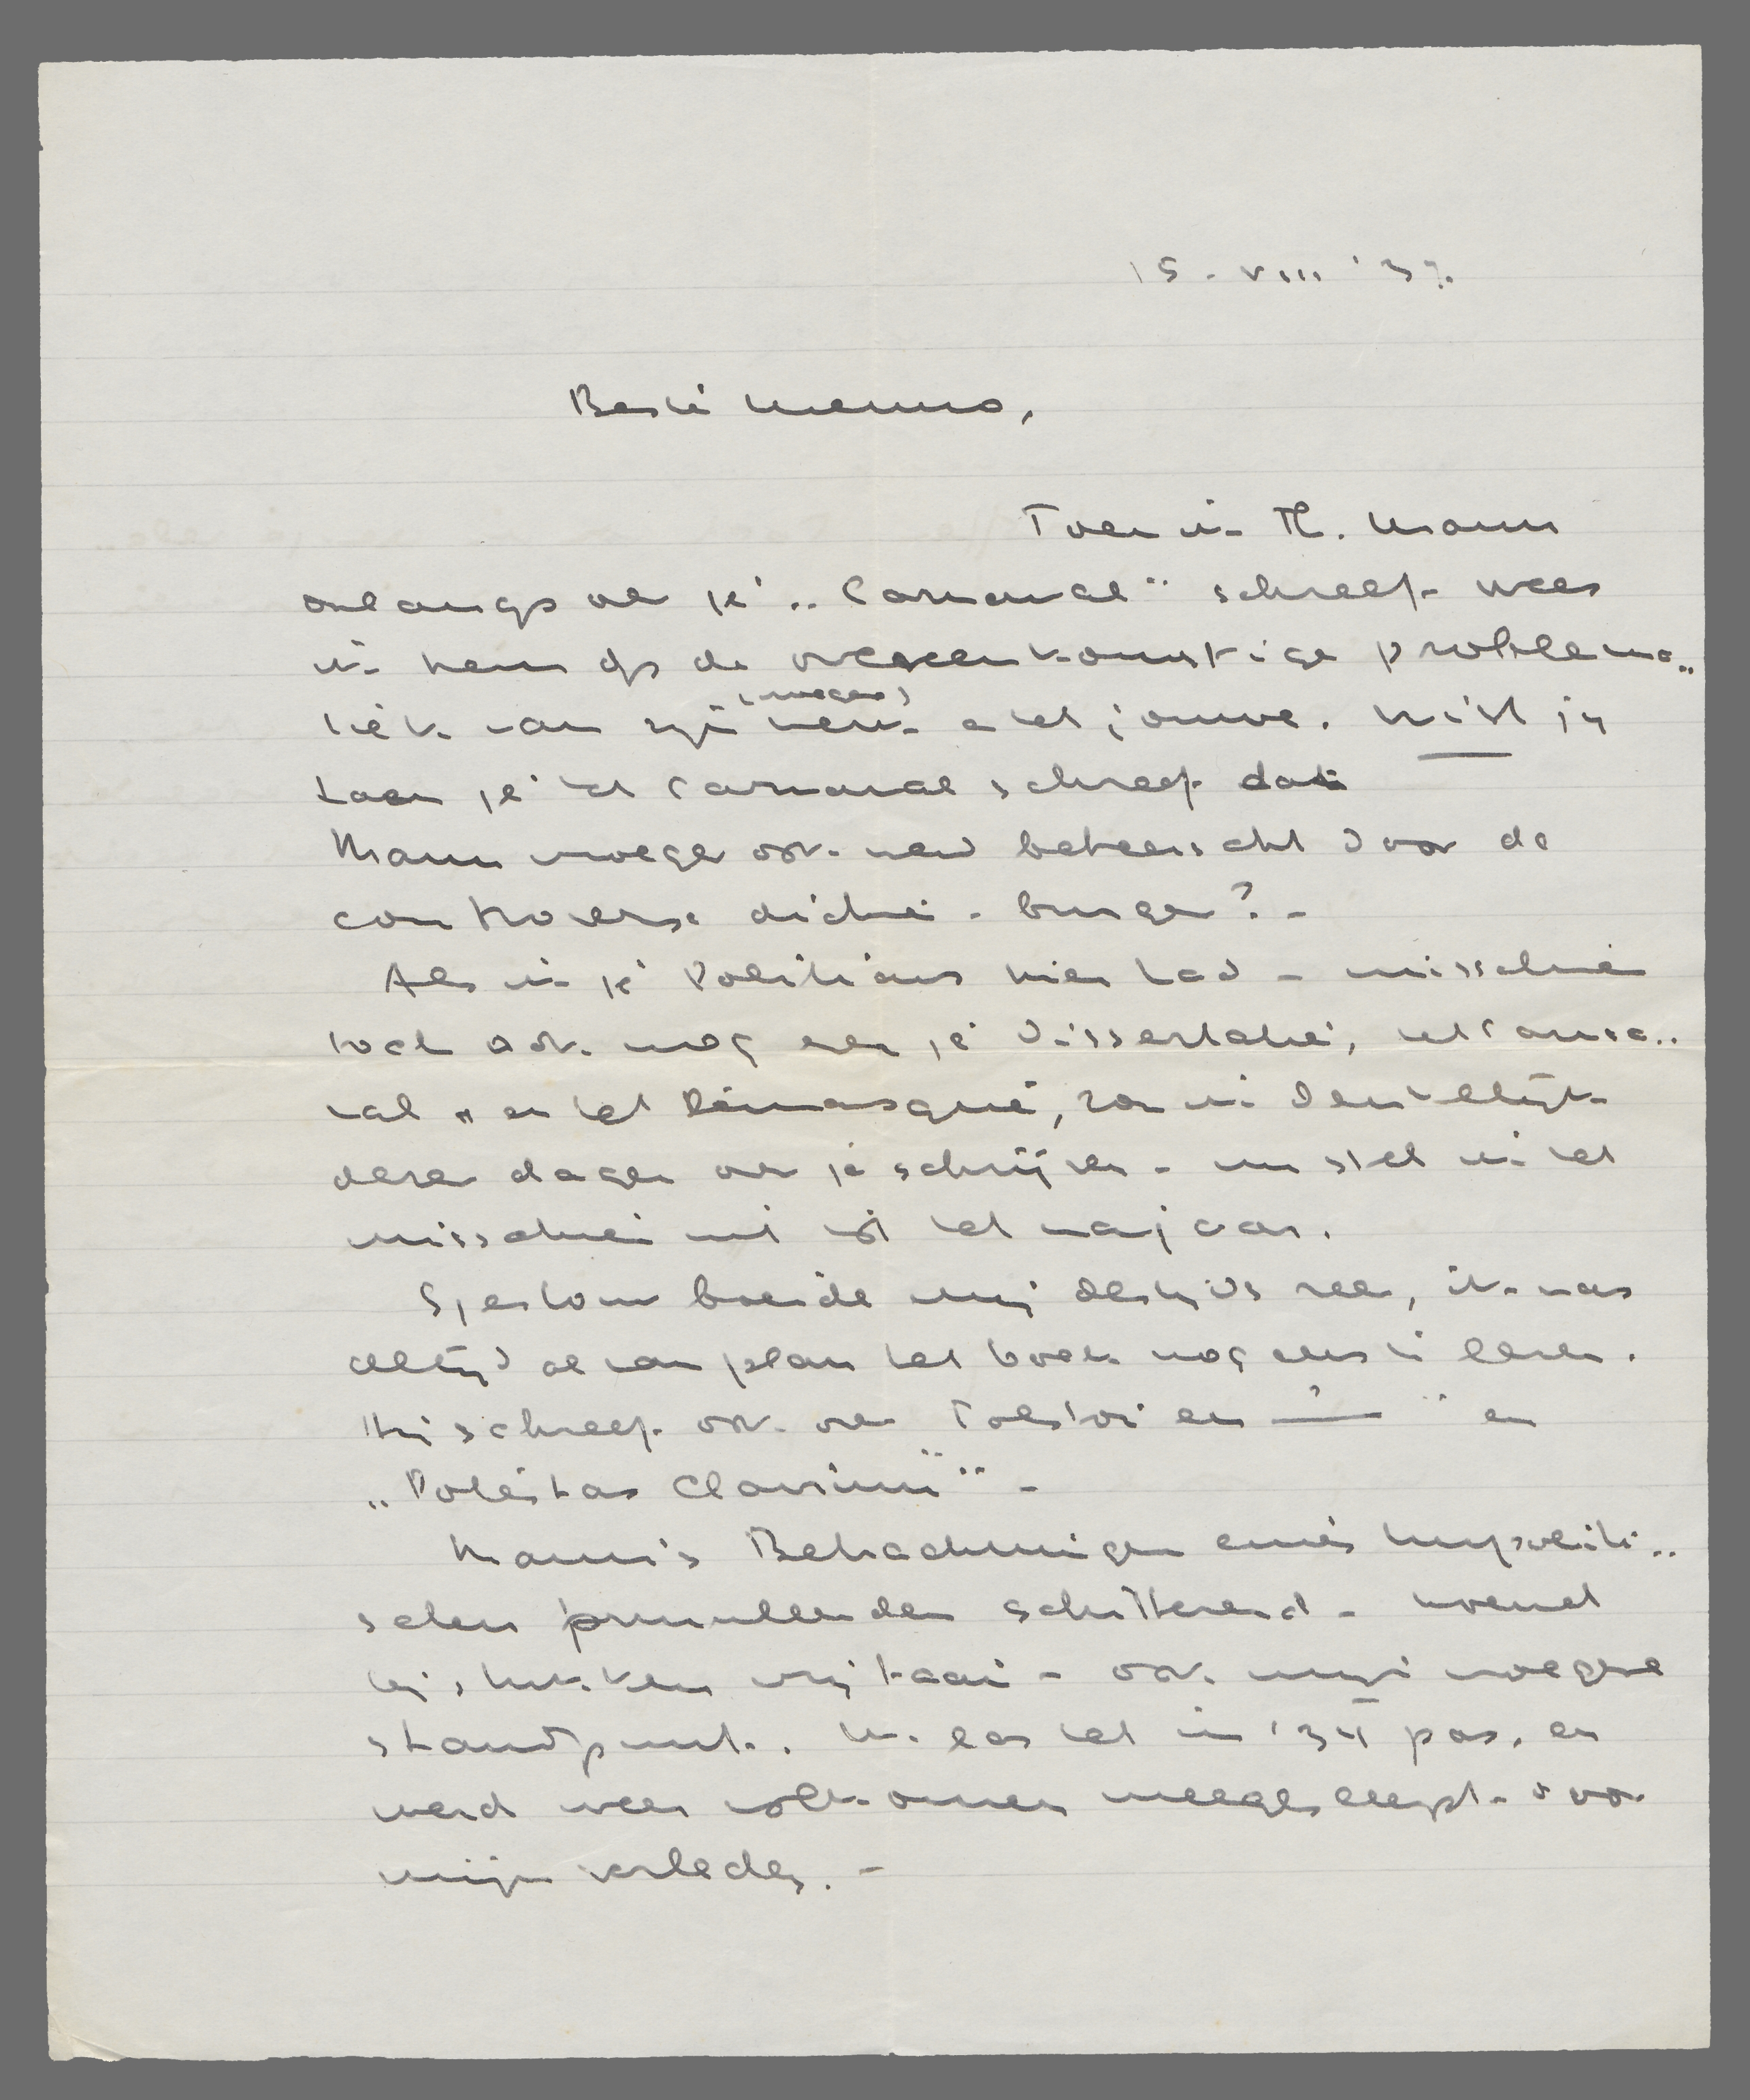 15 - VIII '37.
Beste Menno,
Toen ik Th. Mann
onlangs over je „Carnaval" schreef - wees
ik hem op de overeenkomstige problema„
tiek van zijn (vroeger) werk en het jouwe. Wist jij
toen je het Carnaval schreef dat
Mann vroeger ook werd beheerscht door de
controverse dichter - burger? -
Als ik je Politicus hier had - misschien
toch ook nog even je dissertatie, het Carna„
val en het Démasqué, zou ik denkelijk
dezer dagen over je schrijven - nu stel ik het
misschien uit tot het najaar.
Sjestow boeide mij destijds zeer, ik was
altijd al van plan het boek nog eens te lezen.
Hij schreef ook over Tolstoi en — ? " en
„Potestas Clavium" -
Mann's Betrachtungen eines Unpoliti„
schen schitterend -
bij stukken vrij taai - ook mijn vroegere
standpunt. Ik las het in '34 pas, en
werd weer volkomen meegesleept - door
mijn verleden. -